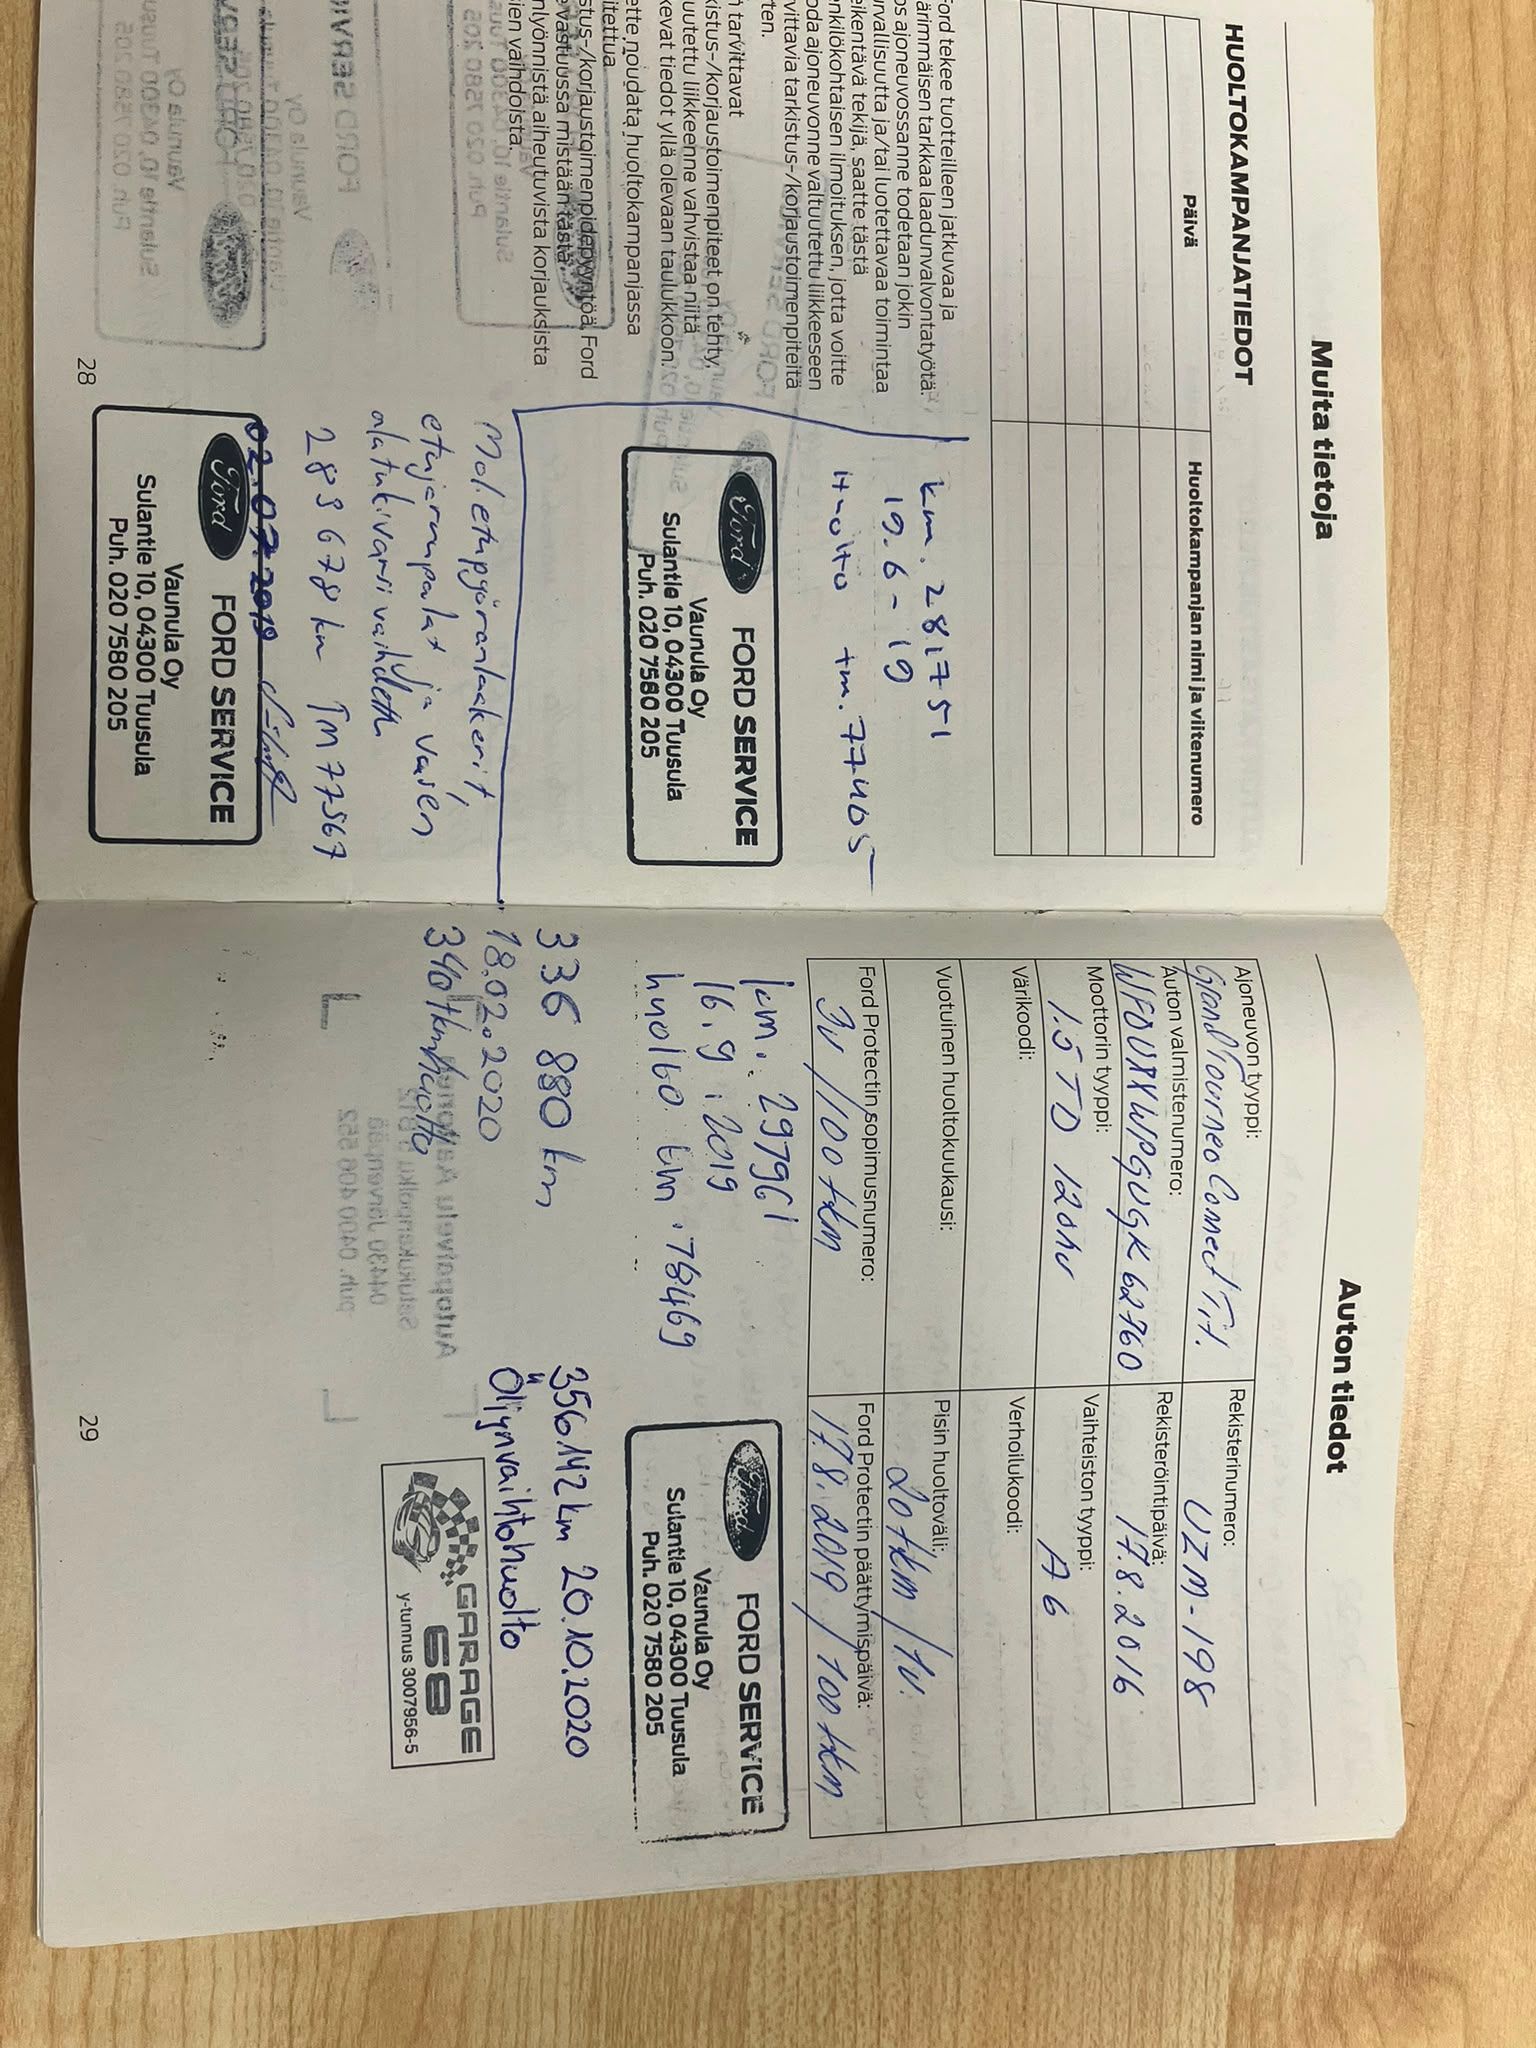 Muita tietoja
HUOLTOKAMPANJATIEDOT
Päivä
Huoltokampanjan nimi ja viitenumero
Ford tekee tuotteilleen jatkuvaa ja
ärimmäisen tarkkaa laadunvalvontatyötä.
os ajoneuvossanne todetaan jokin
urvallisuutta ja/tai luotettavaa toimintaa
eikentävä tekijä, saatte tästä
enkilökohtaisen ilmoituksen, jotta voitte
oda ajoneuvonne valtuutettu liikkeeseen
rvittavia tarkistus-/korjaustoimenpiteitä
ten.
n tarvittavat
kistus-/korjaustoimenpiteet on tehty,
uutettu liikkeenne vahvistaa niitä
kevat tiedot yllä olevaan taulukkoon.
ette noudata huoltokampanjassa
itettua
stus-/korjaustoimenpidepyyntöä, Ford
vastuussa mistään tästä
nlyönnistä aiheutuvista korjauksista
ien vaihdoista.
km. 281751
19.6-19
Huolto tm. 77405
Ford
FORD SERVICE
Vaunula Oy
Sulantie 10, 04300 Tuusula
Puh. 020 7580 205
Mol. etupyöränlaakerit,
etujarrupalat ja vasen
alatukivarsi vaihdettu
283678 km TM 77567
02.07.2019
Ford
FORD SERVICE
Vaunula Oy
Sulantie 10, 04300 Tuusula
Puh. 020 7580 205
28
Auton tiedot
Ajoneuvon tyyppi:
Grand Tourneo Connect Tit.
Rekisterinumero:
UZM-198
Auton valmistenumero:
WF0UXXWPGUGK62760
Rekisteröintipäivä:
17.8.2016
Moottorin tyyppi:
1.5 TD 120hv
Vaihteiston tyyppi:
A6
Värikoodi:
Verhoilukoodi:
Vuotuinen huoltokuukausi:
Pisin huoltoväli:
20tkm / 1v.
Ford Protectin sopimusnumero:
3v / 100tkm
Ford Protectin päättymispäivä:
17.8.2019 / 100tkm
km. 297961
16.9.2019
huolto tm. 78469
Ford
FORD SERVICE
Vaunula Oy
Sulantie 10, 04300 Tuusula
Puh. 020 7580 205
336 880 km
18.02.2020
340tkm huolto
356142km 20.10.2020
Öljynvaihtohuolto
GARAGE
68
y-tunnus 3007956-5
29